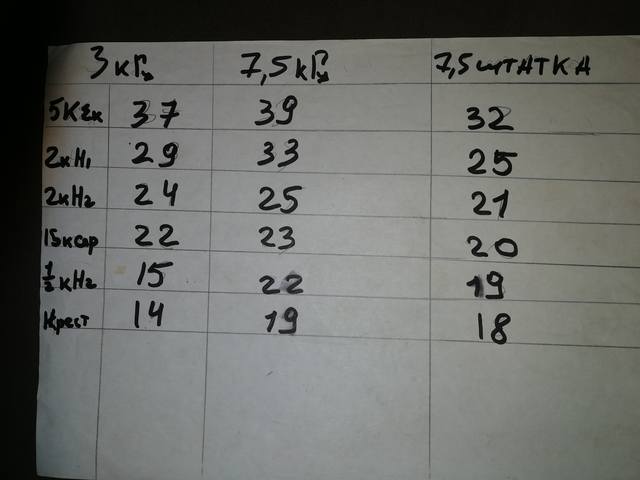 3 кГц 7,5 кГц 7,5 штатка
5К Ек 37 39 32
2кН1 29 33 25
2кНг 24 25 21
15кор 22 23 20
½кНг 15 22 19
Крест 14 19 18